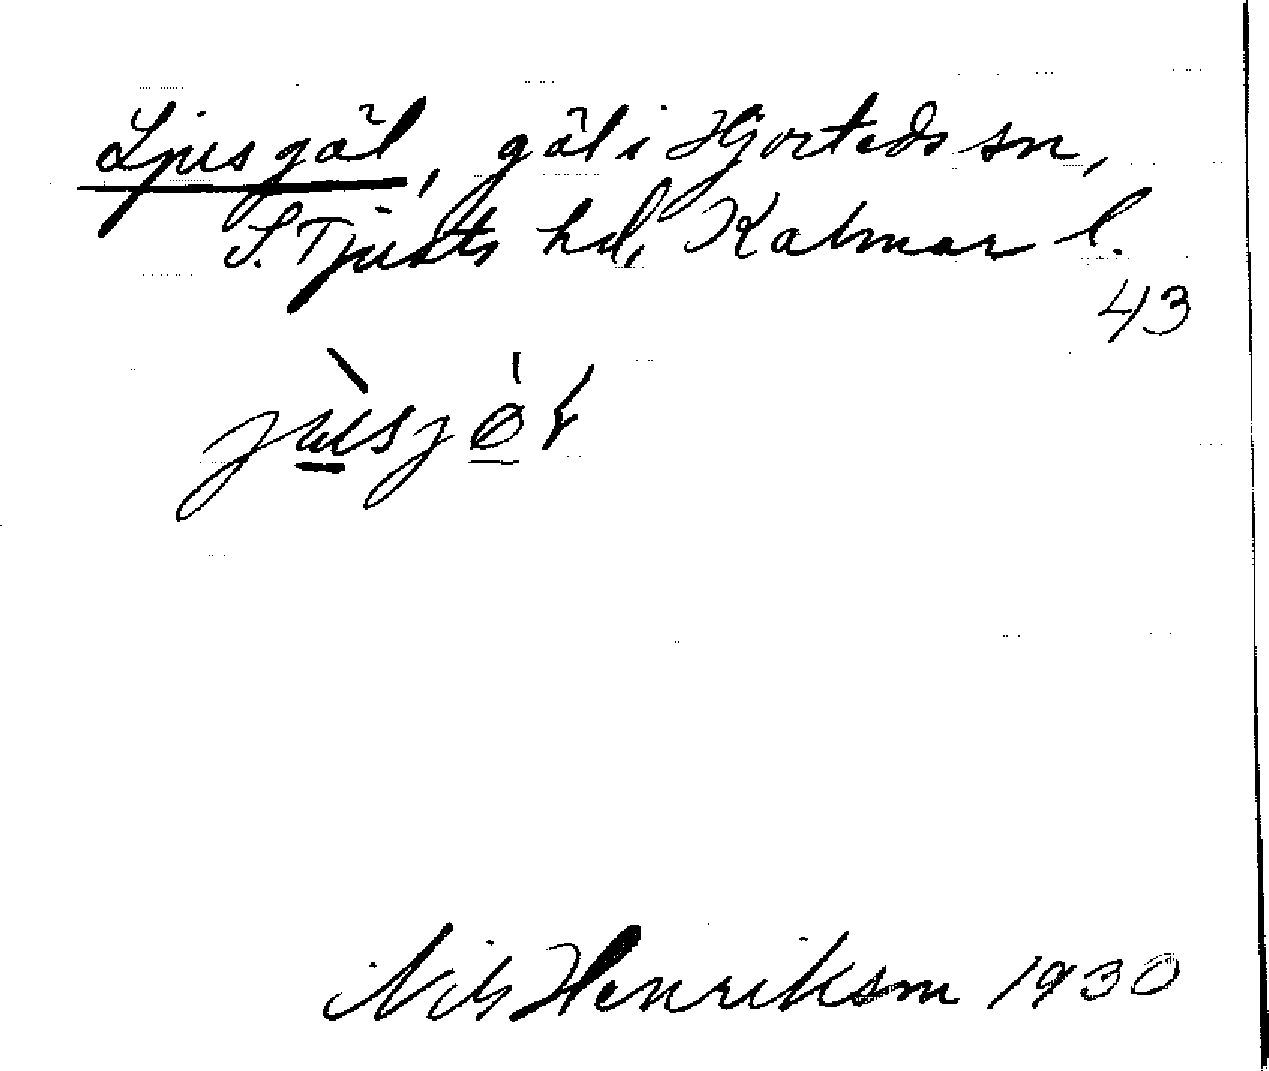 Ljusgöl, göl i Hjorteds sn,
S. Tjusts hd, Kalmar l.
43
Nils Henrikson 1930